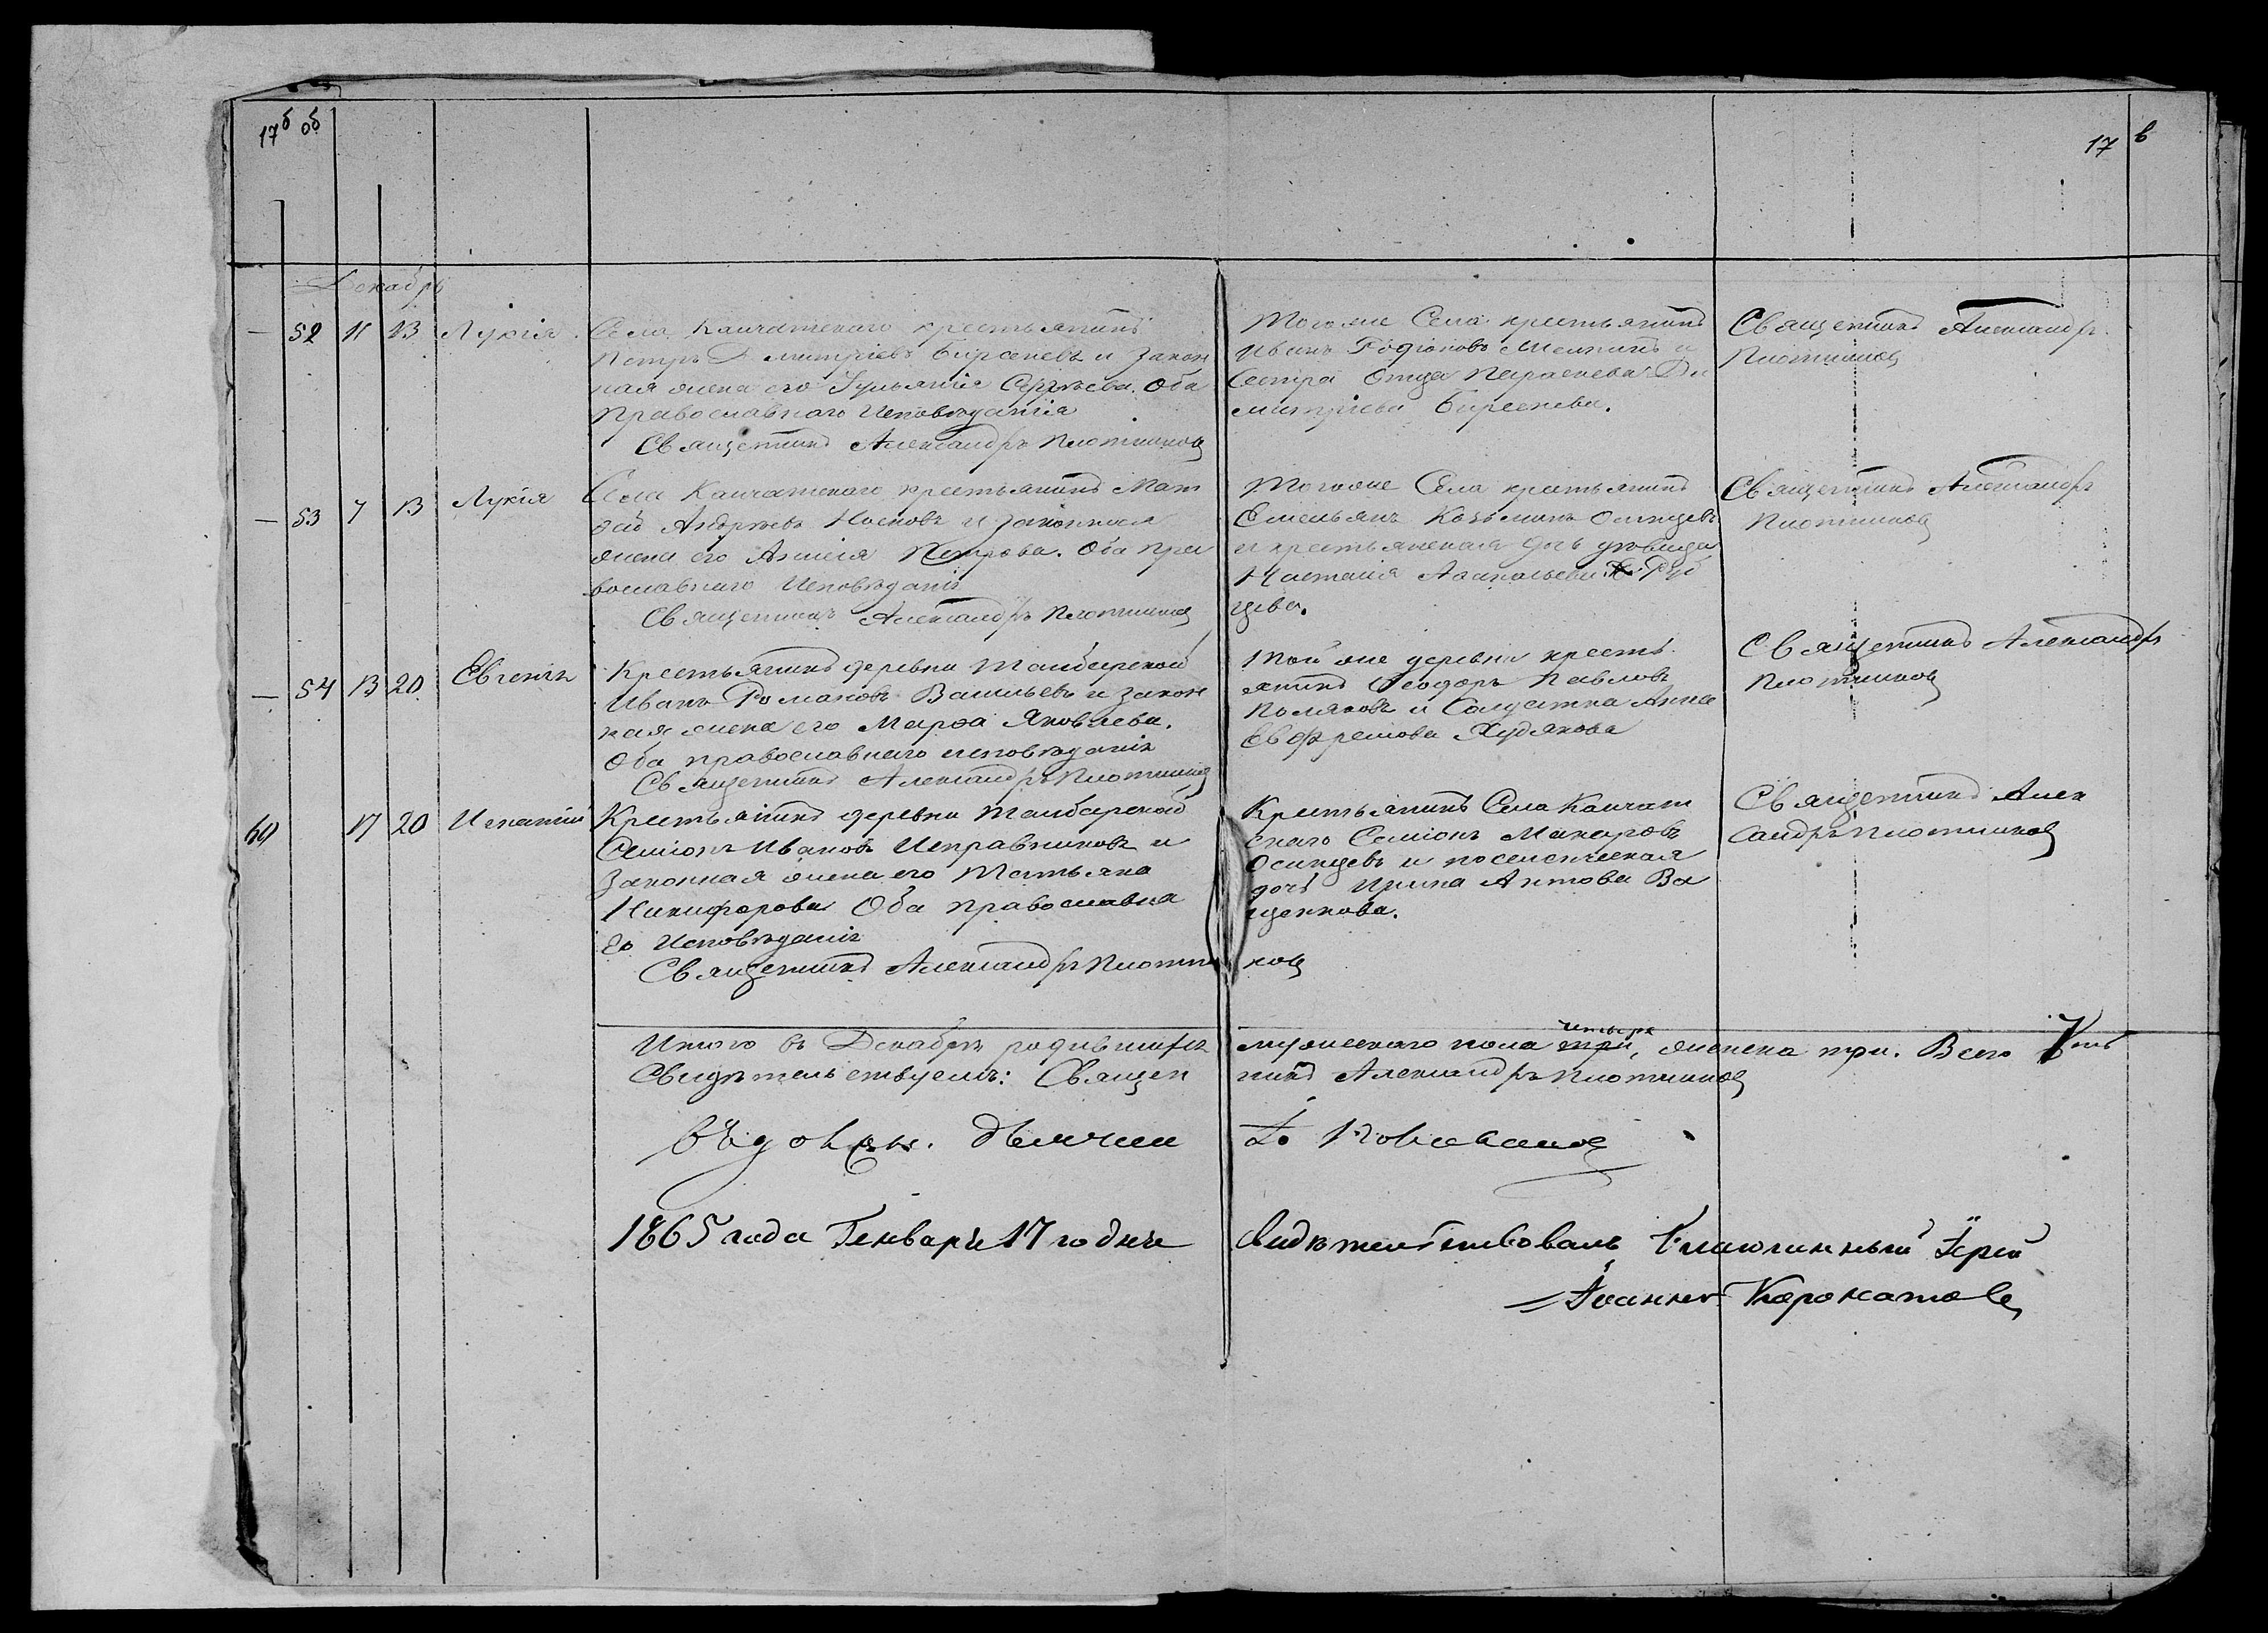 17б об
17 в
Декабрь
— 52 11 13 Лукія. Села Камчатскаго крестьянинъ
Петръ Димитріевъ Бирсеневъ и закон
ная жена его Іульянія Сергѣева. Оба
православнаго Исповѣданія
Священникъ Александръ Плотниковъ
Тогоже Села крестьянинъ
Иванъ Родіоновъ и
Сестра Отца Параскева Ди
митріева Бирсенева.
Священникъ Александръ
Плотниковъ
— 53 7 13 Лукія Села Камчатскаго крестьянинъ Мат
ѳій Андреевъ Носковъ и законная
жена его Анисія Петрова. Оба пра
вославнаго Исповѣданія
Священникъ Александръ Плотниковъ
Тогоже Села крестьянинъ
Емельянъ Козьминъ Осинцевъ
и крестьянская дочь дѣвица
Настасія
цева.
Священникъ Александръ
Плотниковъ
— 54 13 20 Евгенія Крестьянинъ деревни Тамбарской
Иванъ Романовъ Васильевъ и закон
ная жена его Марѳа Яковлева.
Оба православнаго исповѣданія
Священникъ Александръ Плотниковъ
Той же деревни кресть
янинъ Ѳеодоръ Павловъ
Поляковъ и Солдатка Анна
Евфремова Худякова
Священникъ Александръ
Плотниковъ
60 17 20 Игнатій Крестьянинъ деревни Тамбарской
Симіонъ Ивановъ Исправниковъ и
Законная жена его Татьяна
Никифорова Оба православна
го Исповѣданія
Священникъ Александръ Плотни ковъ
Крестьянинъ Села Камчат
скаго Семіонъ Макаровъ
Осинцевъ и поселенческая
дочь Ирина Антова Ва
щенкова.
Священникъ Алек
сандръ Плотниковъ
Итого въ Декабрѣ родившихся мужескаго пола три, четыре женска три. Всего
Свидѣтельствуемъ: Священ никъ Александръ Плотниковъ
1865 года Генваря 17 го дня свидѣтельствовалъ Благочинный Іерей
Іоаннъ Коронатовъ